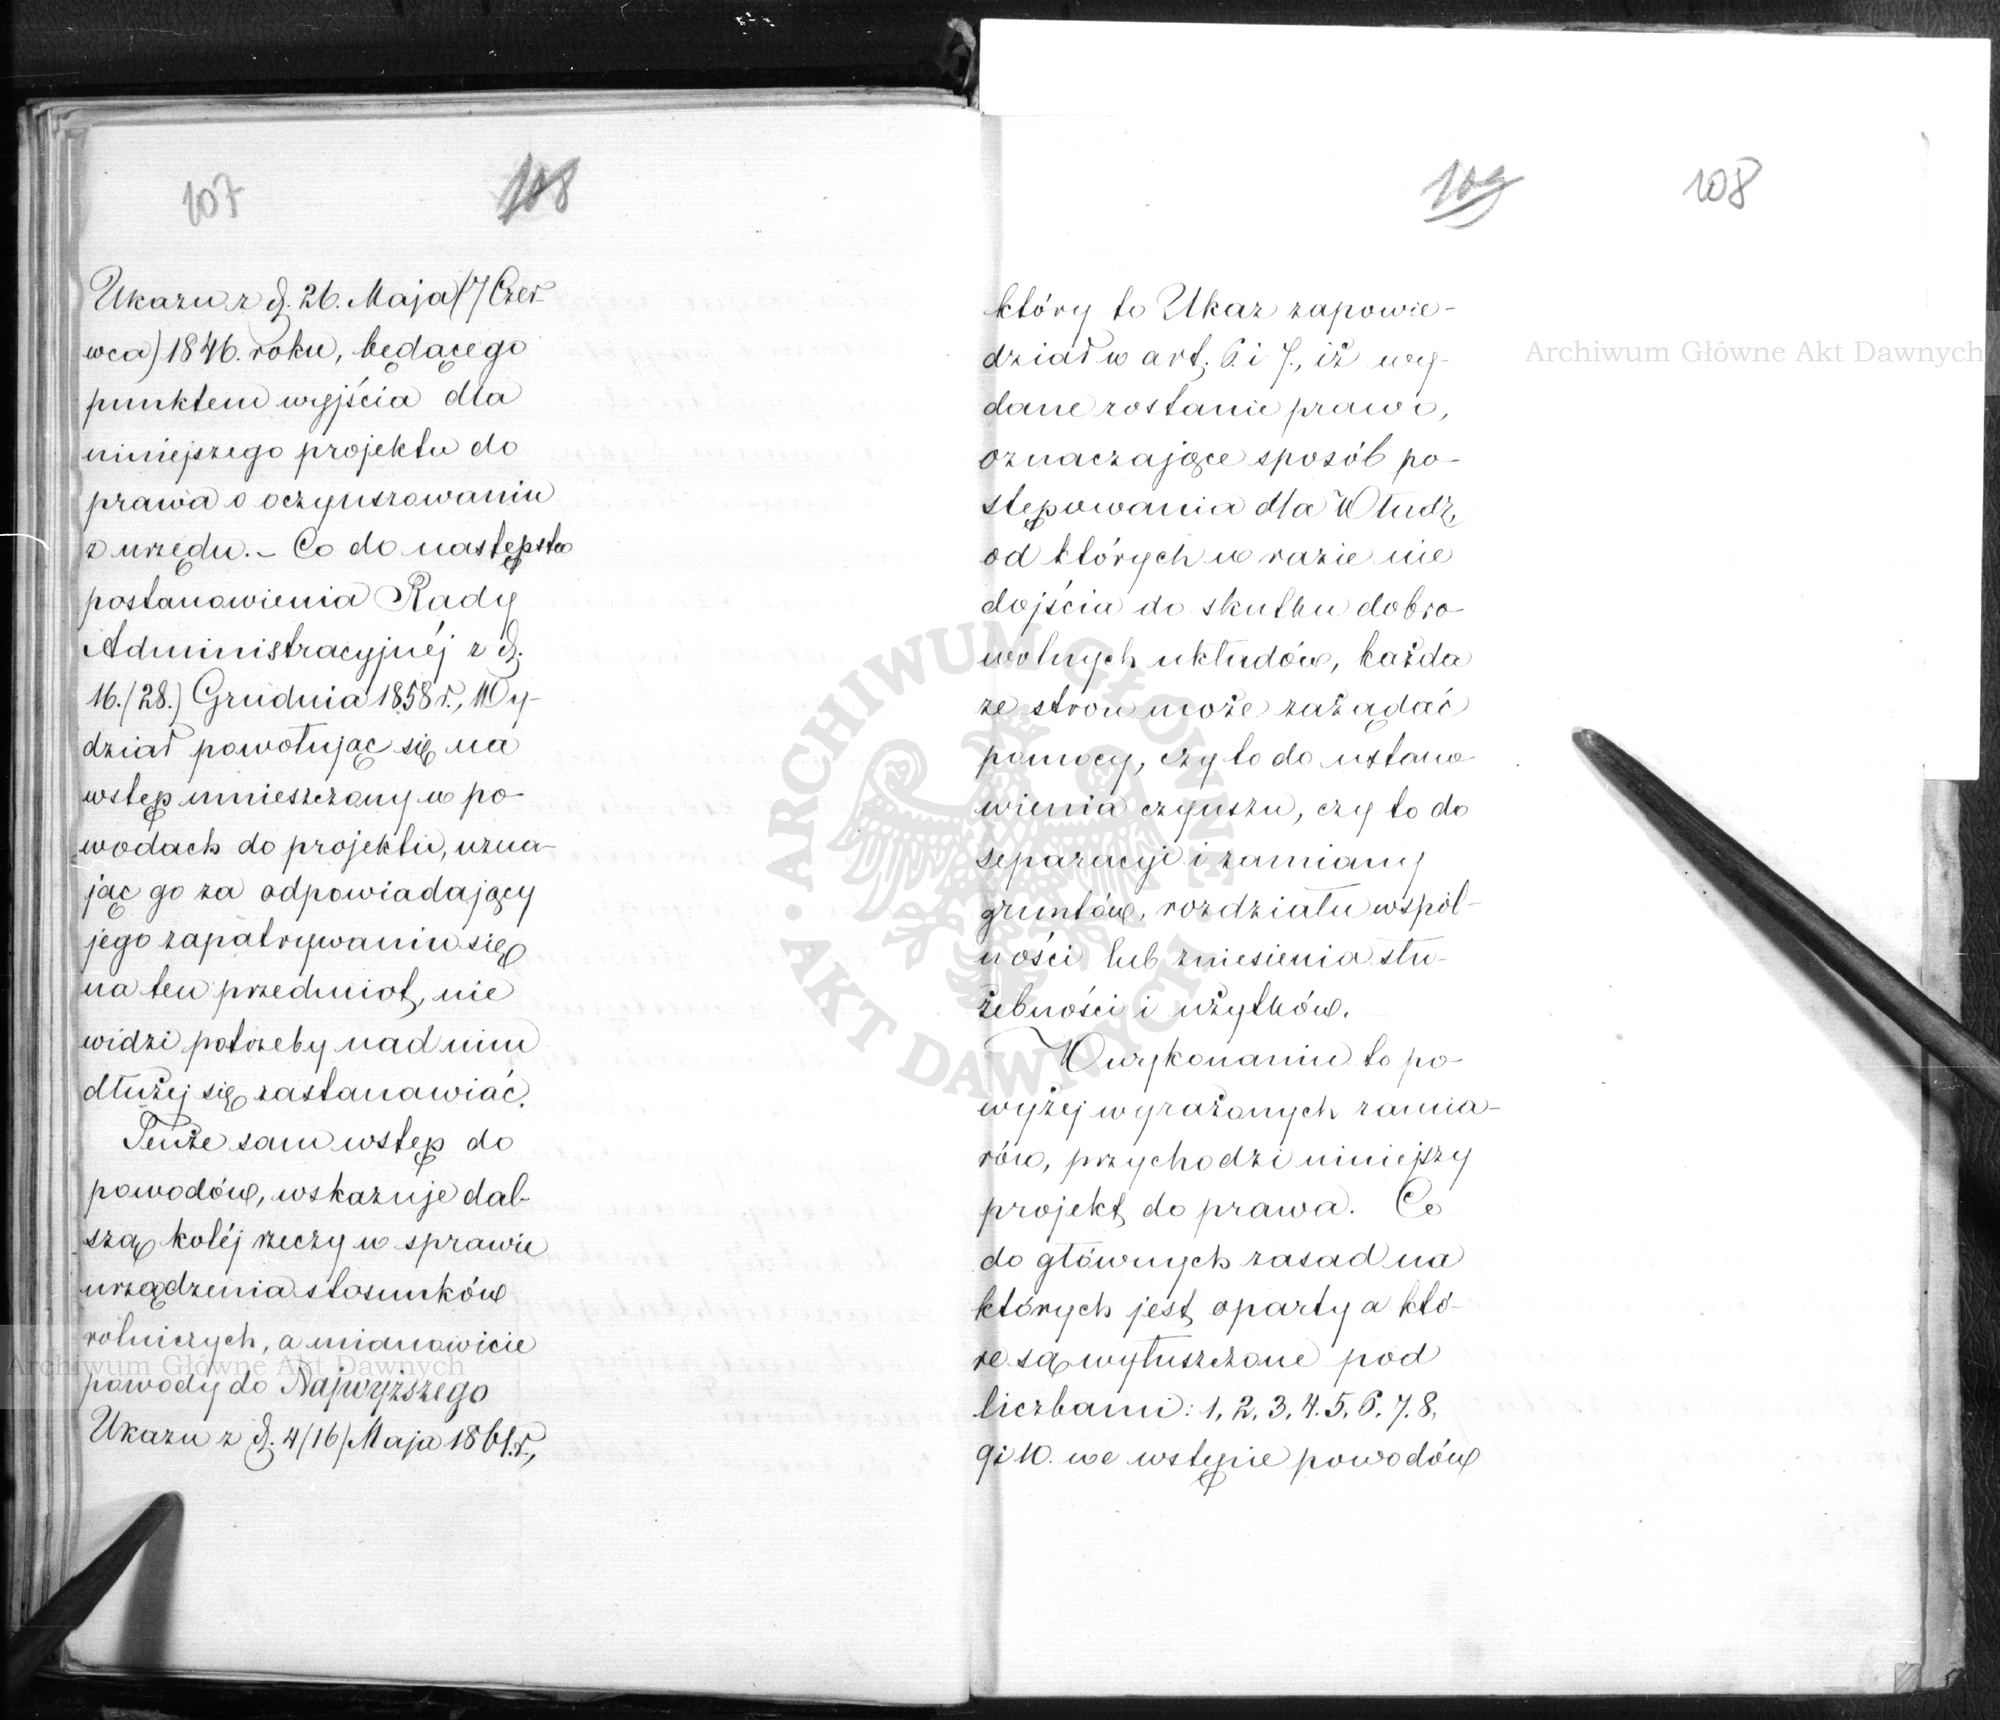 107 108
Ukazu z d. 26. Maja (7 Czer-
wca) 1846. roku, będącego
punktem wyjścia dla
niniejszego projektu do
prawa o oczynszowaniu
z urzędu. – Co do następstw
postanowienia Rady
Administracyjnéj z d.
16./28.) Grudnia 1858 r., Wy-
dział powołując się na
wstęp umieszczony w po-
wodach do projektu, uzna-
jąc go za odpowiadający
jego zapatrywaniu się
na ten przedmiot, nie
widzi potrzeby nad nim
dłużej się zastanawiać.
Tenże sam wstęp do
powodów, wskazuje dal-
szą koléj rzeczy w sprawie
urządzenia stosunków
rolniczych, a mianowicie
powody do Najwyższego
Ukazu z d. 4/16/ Maja 1861. r.,
109 108
który to Ukaz zapowie-
dział w art. 6. i 7., iż wy-
dane zostanie prawo,
oznaczające sposób po-
stępowania dla Władz,
od których w razie nie
dojścia do skutku dobro-
wolnych układów, każda
ze stron może zażądać
pomocy, czy to do ustano-
wienia czynszu, czy to do
separacyi i zamiany
gruntów, rozdziału wspól-
ności lub zniesienia słu-
żebności i użytków.
W wykonaniu to po-
wyżej wyrażonych zamia-
rów, przychodzi niniejszy
projekt do prawa. Co
do głównych zasad na
których jest oparty a któ-
re są wyłuszczone pod
liczbami: 1, 2, 3, 4. 5. 6. 7. 8.
9 i 10. we wstępie powodów
Archiwum Główne Akt Dawnych
Archiwum Główne Akt Dawnych
ARCHIWUM GŁÓWNE • AKT DAWNYCH •